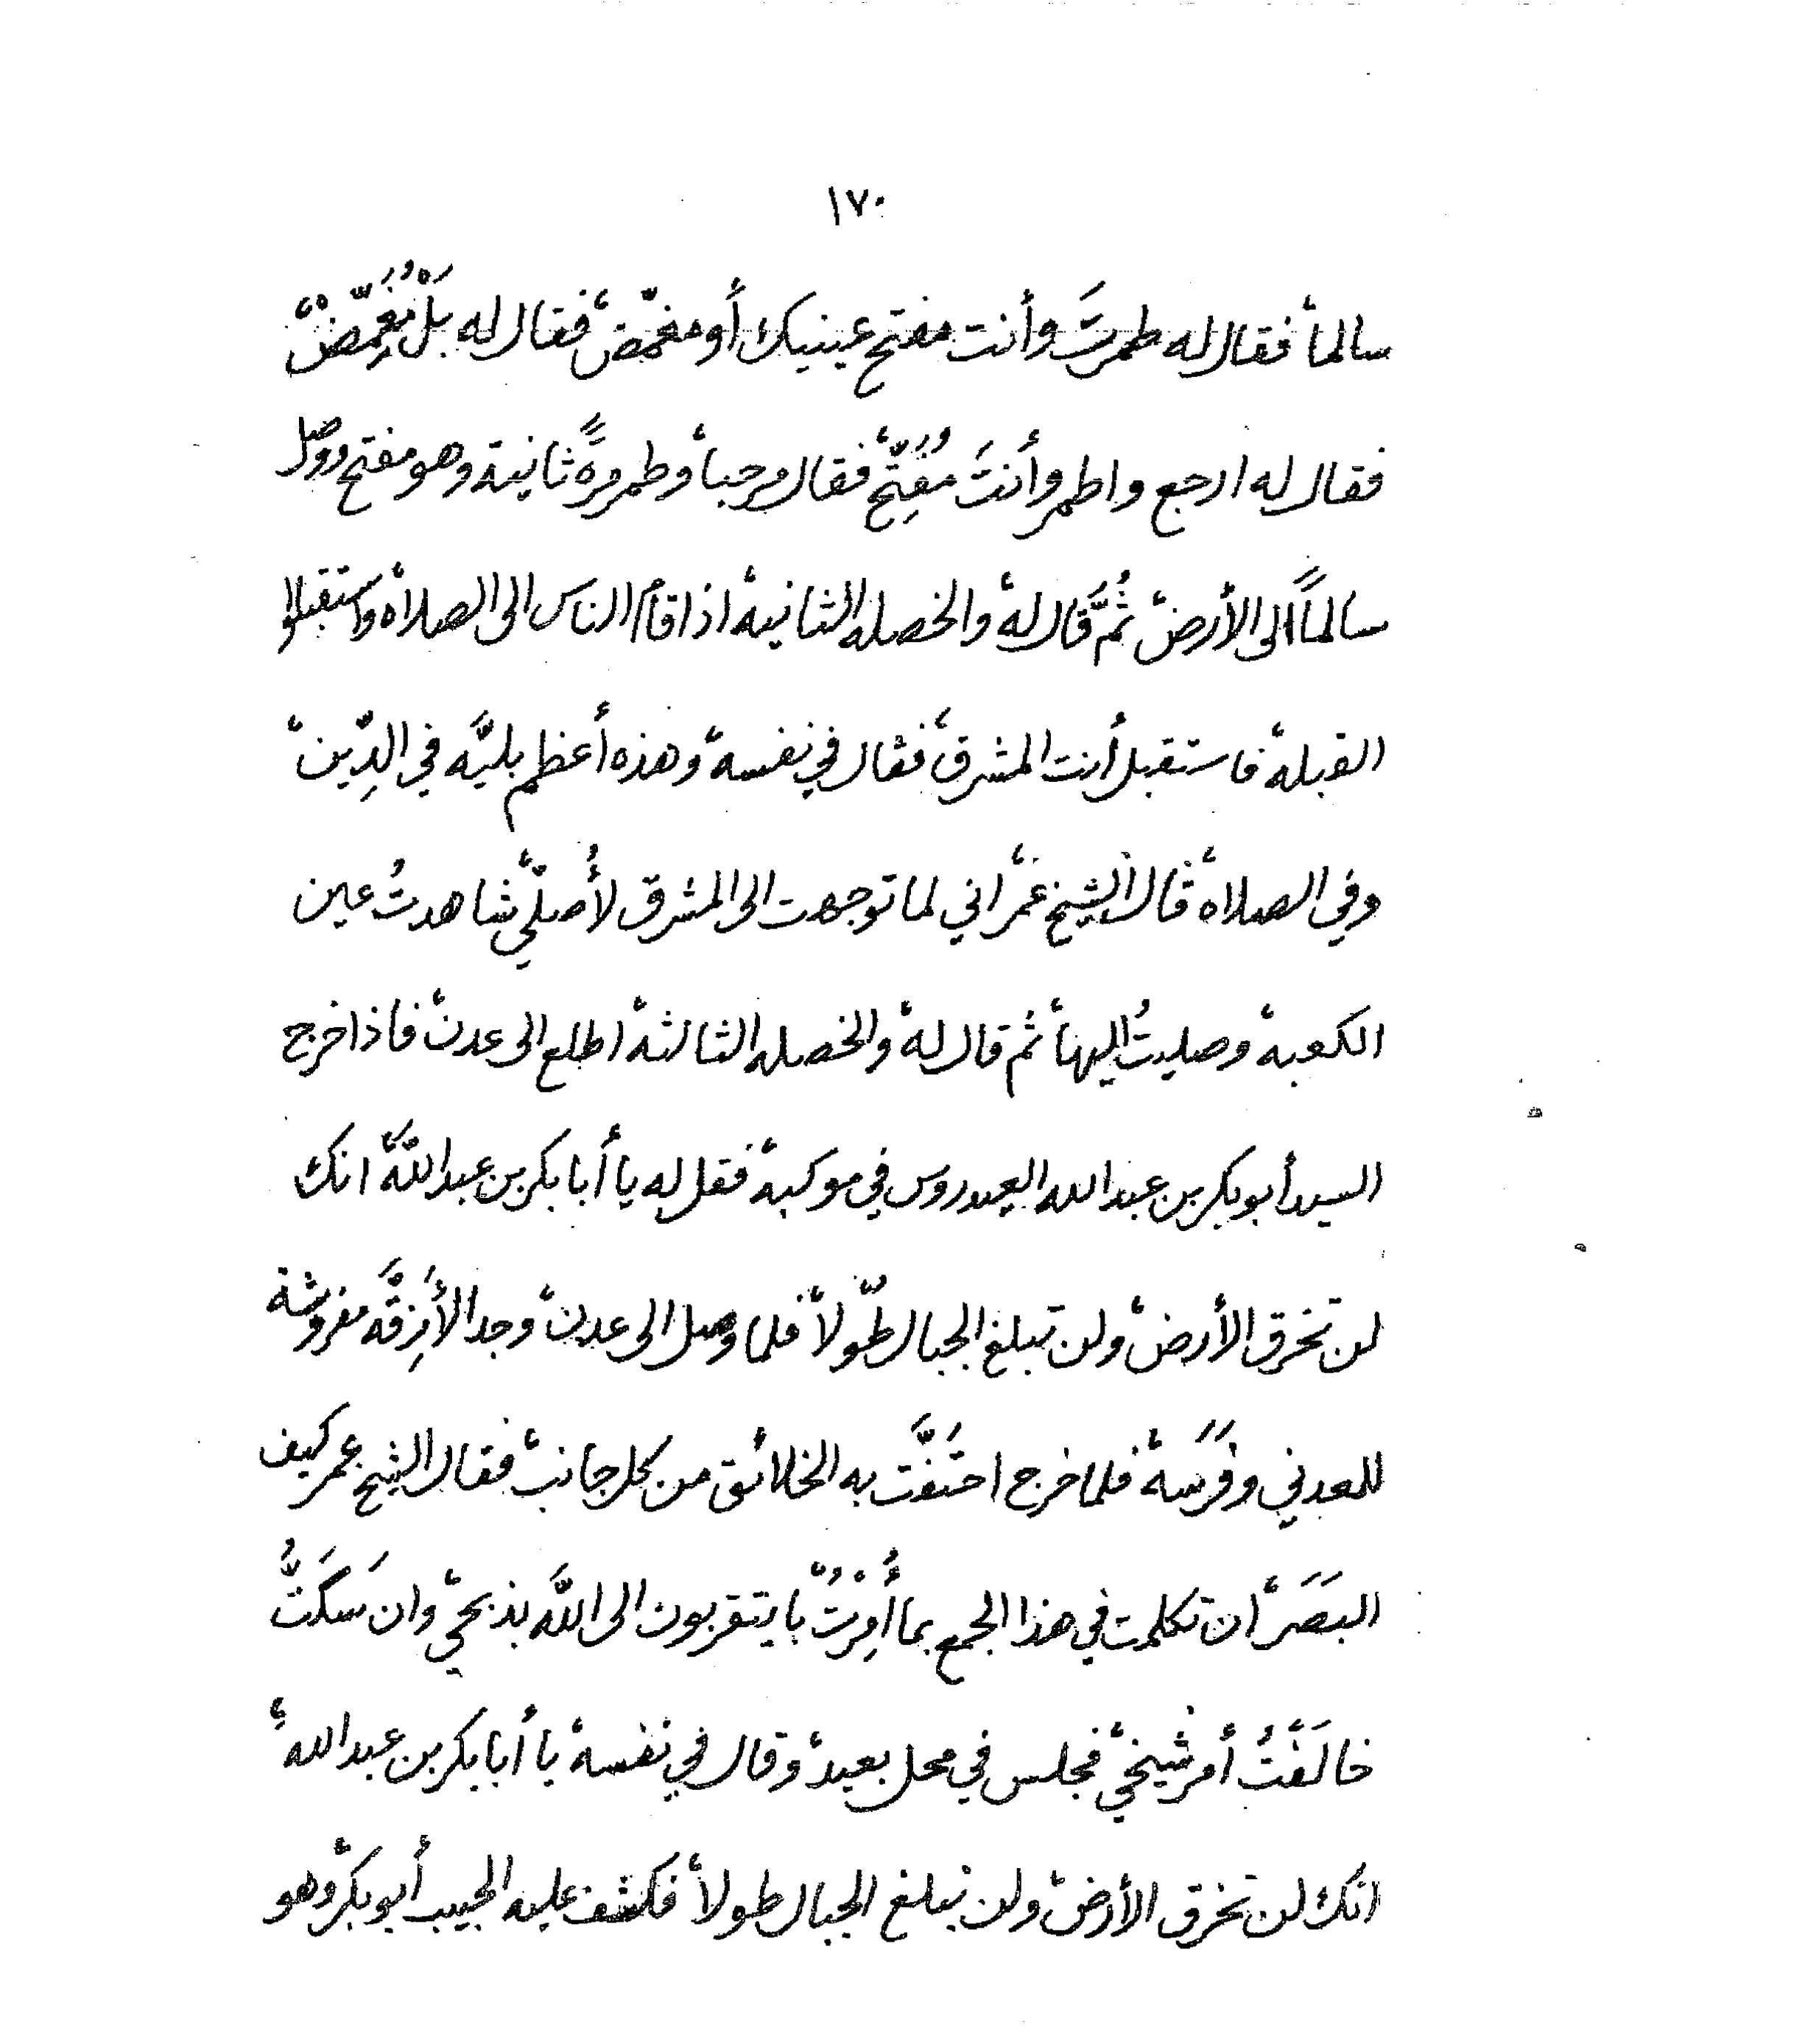 ١٧٠
سالماً، فقال له طمرتَ وأنت مفتح عينيك أو مغمّض، فقال له بَلْ مُغَمِّضْ،
فقال له ارجع واطمر وأنتَ مُفَتِّحْ، فقال مرحباً، وطمر مرةً ثانية وهو مفتح ووصل
سالماً الى الأرض، ثُمَّ قال له، والخصله الثانيه، اذا قام الناس الى الصلاه، واستقبلوا
القبله، فاستقبل أنت المشرق، فقال في نفسه، وهذه أعظم بليَّه في الدِّين،
وفي الصلاه، قال الشيخ عمر، اني لما توجهت الى المشرق لأُصلّي، شاهدتُ عين
الكعبه، وصليتُ اليها، ثم قال له، والخصله الثالثه، اطلع الى عدن، فاذا خرج
السيد أبوبكر بن عبدالله العيدروس في موكبه، فقل له يا أبابكر بن عبدالله، انك
لن تخرق الأرض، ولن تبلغ الجبال طولاً، فلما وصل الى عدن، وجد الأَزِقَّه مفروشة
للعدني وفَرَسَه، فلما خرج احتَفَّت به الخلائق من كل جانب، فقال الشيخ عمر كيف
البَصَر، ان تكلمت في هذا الجمع بما أُمِرْتُ بايتقربون الى اللَّه بذبحي، وان سَكَتُّ
خالَفْتُ أمر شيخي، فجلس في محل بعيد، وقال في نفسه، يا أبابكر بن عبدالله،
انك لن تخرق الأرض، ولن تبلغ الجبال طولاً، فكشف عليه الحبيب أبوبكر، وهو